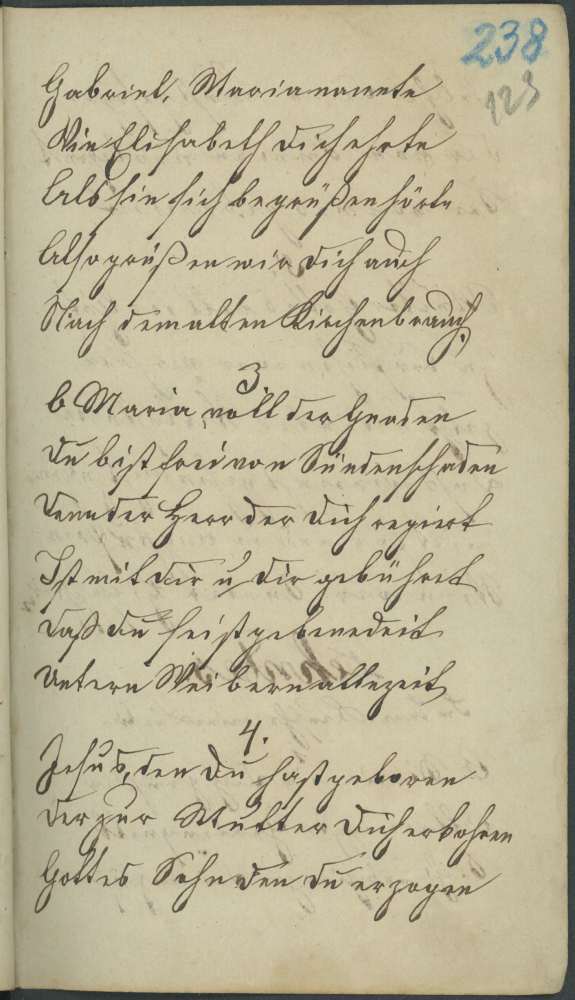 238
123
Gabriel, Maria nannte
Wie Elisabeth dich ehrte
Als sie sich begrüßen hörte
Also grüßen wir dich auch
Nach dem alten Kirchenbrauch.
3
O Maria voll der Gnaden
Du bist frei von Sündenschaden
Denn der Herr der dich regiert
Ist mit dir u dir gebühret
Daß du seist gebenedeit
Untern Weibern allezeit
4.
Jesus, den du hast geboren
Der zur Mutter dich erkohren
Gottes Sohn den du erzogen